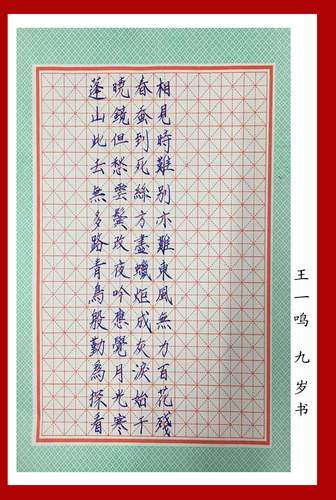 相見時難別亦難東風無力百花殘
春蚕到死絲方盡蠟炬成灰淚始干
曉鏡但愁雲鬓改夜吟應覺月光寒
蓬山此去無多路青鳥殷勤為探看
王一鸣 九岁书